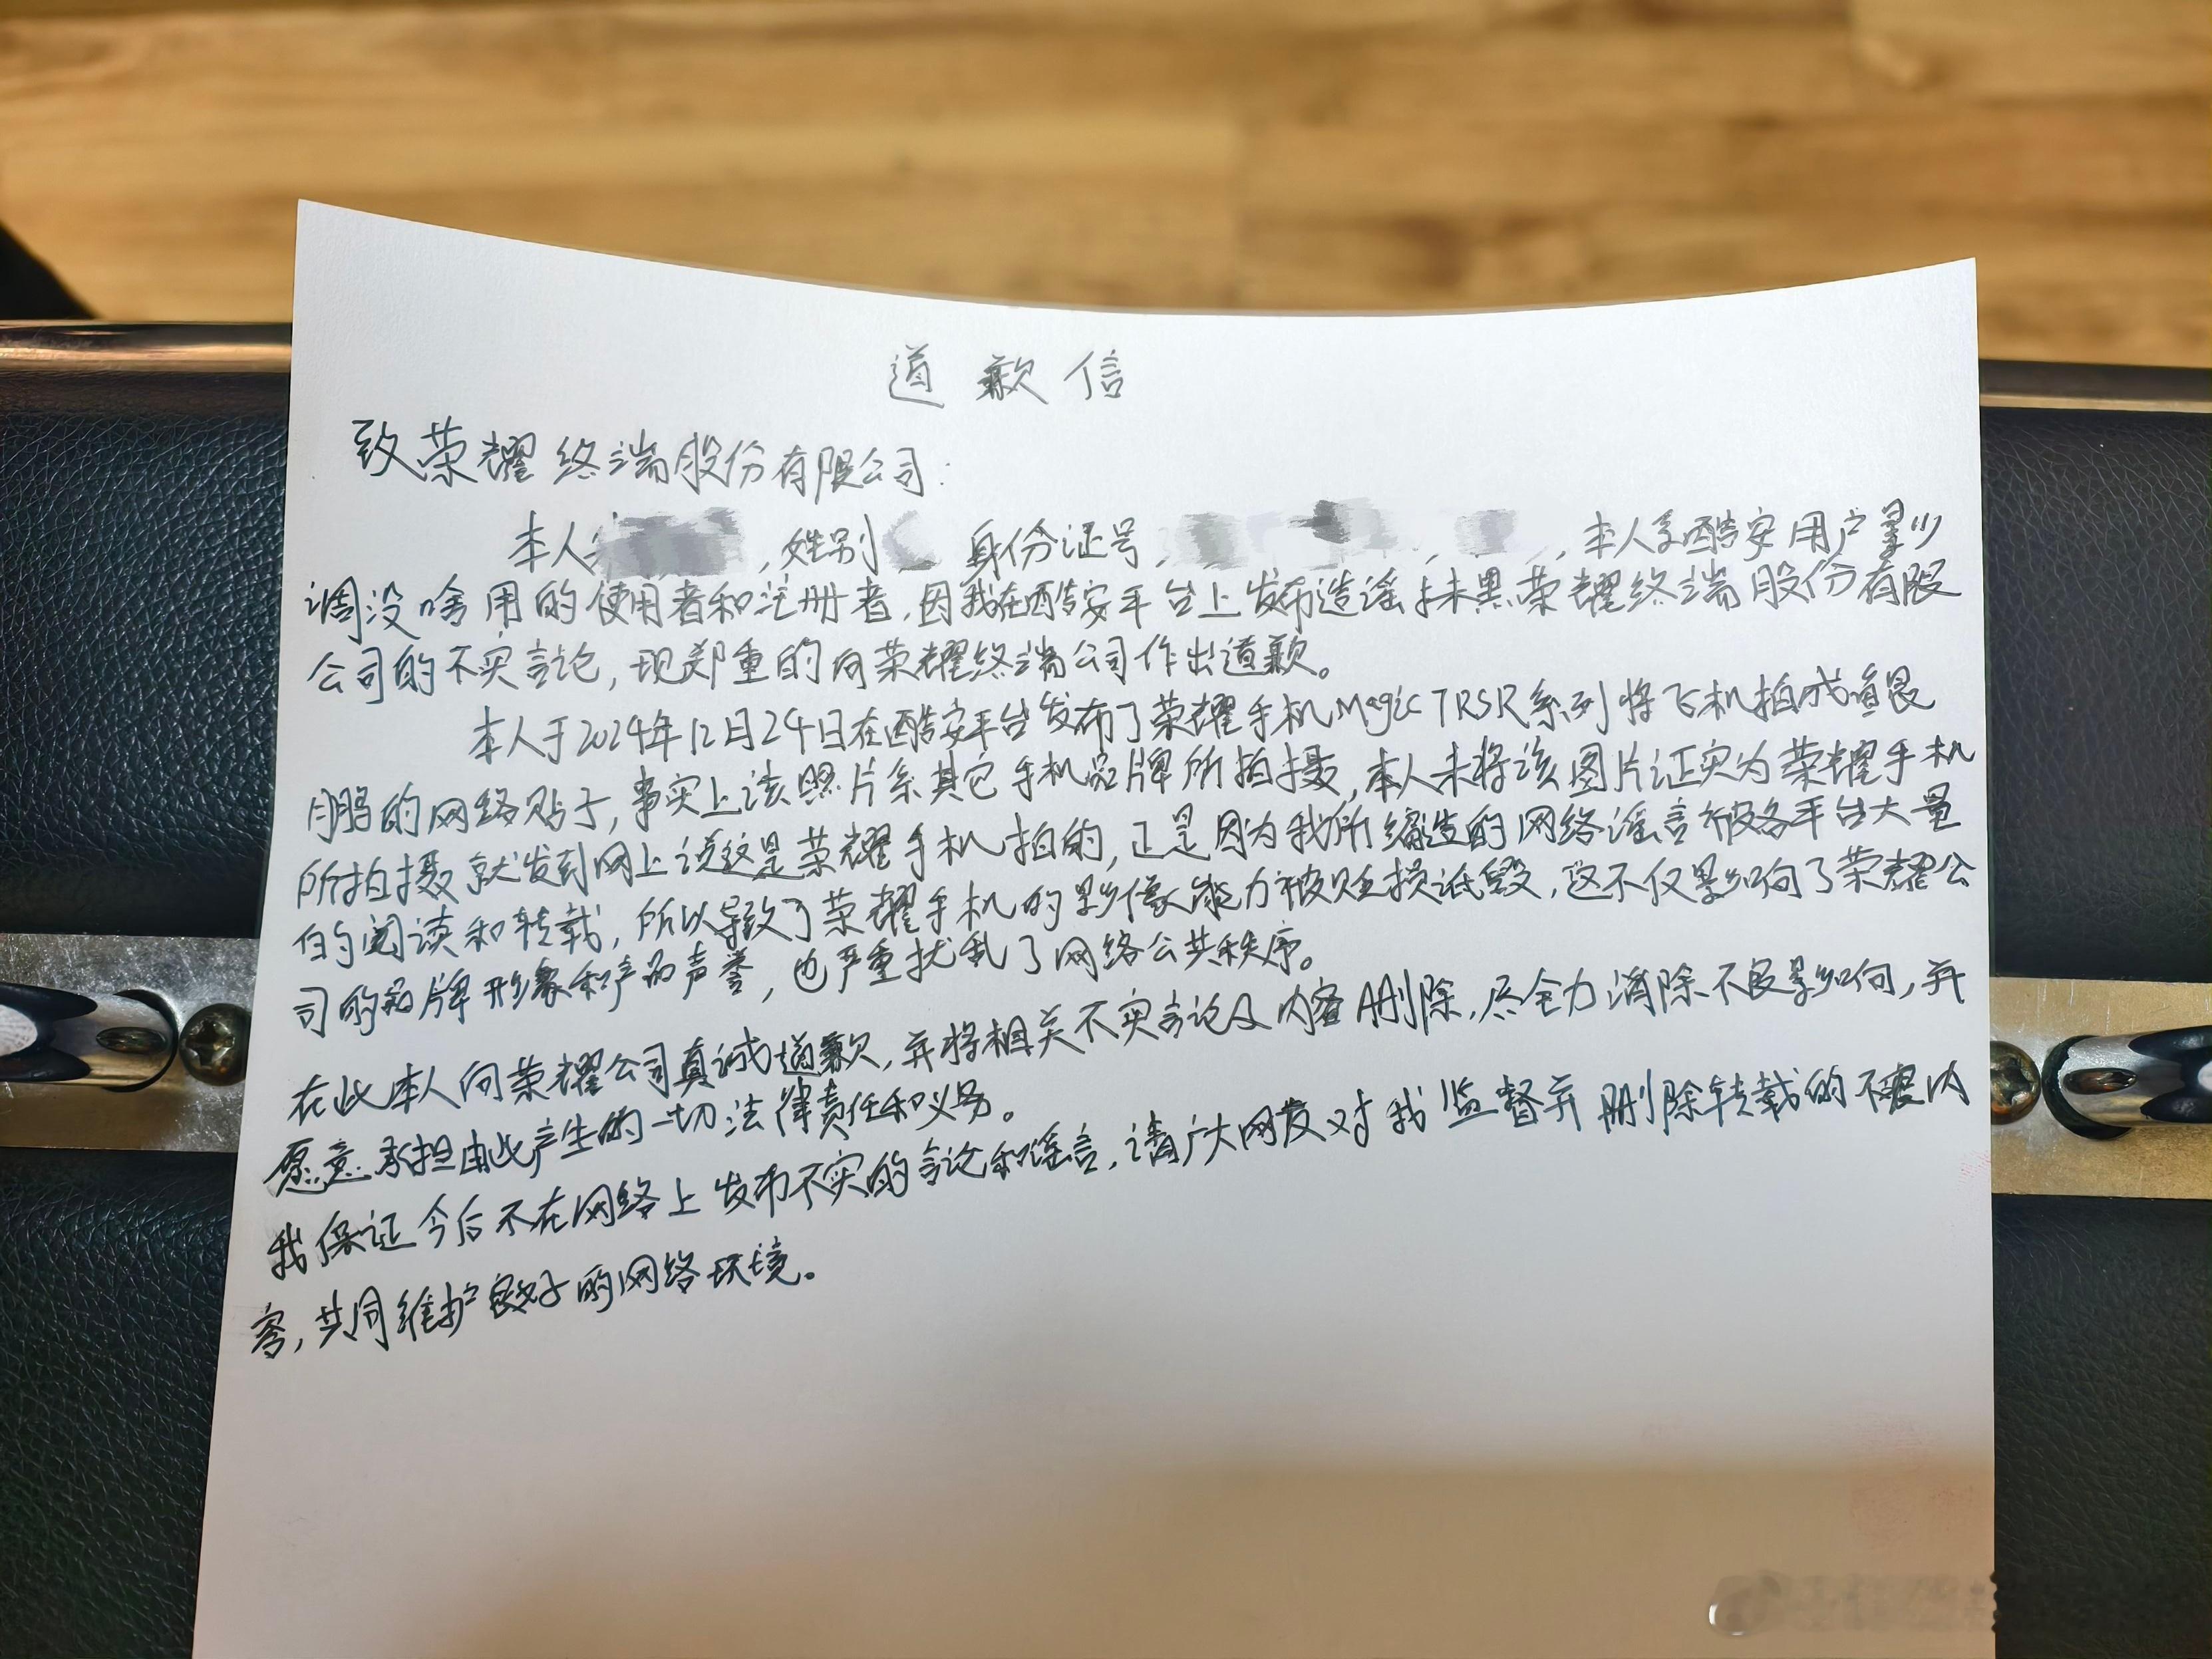 道歉信
致荣耀终端股份有限公司:
本人 ,姓别 身份证号, , ,本人系酷安用户影
调没啥用的使用者和注册者,因我在酷安平台上发布造谣抹黑荣耀终端股份有限
公司的不实言论,现郑重的向荣耀终端公司作出道歉。
本人于2024年12月24日在酷安平台发布了荣耀手机Magic7RSR系列将飞机拍成
鹏的网络贴子,事实上该照片系其它手机品牌所拍摄,本人未将该图片证实为荣耀手机
所拍摄就发到网上说这是荣耀手机拍的,正是因为我所编造的网络谣言被各平台大量
的阅读和转载,所以导致了荣耀手机的影像能力被贬损诋毁,这不仅影响了荣耀公
司的品牌形象和产品声誉,也严重扰乱了网络公共秩序。
在此本人向荣耀公司真诚道歉,并将相关不实言论及内容删除,尽全力消除不良影响,并
愿意承担由此产生的一切法律责任和义务。
我保证今后不在网络上发布不实的言论和谣言,请广大网友对我监督并删除转载的不良内
容,共同维护良好的网络环境。